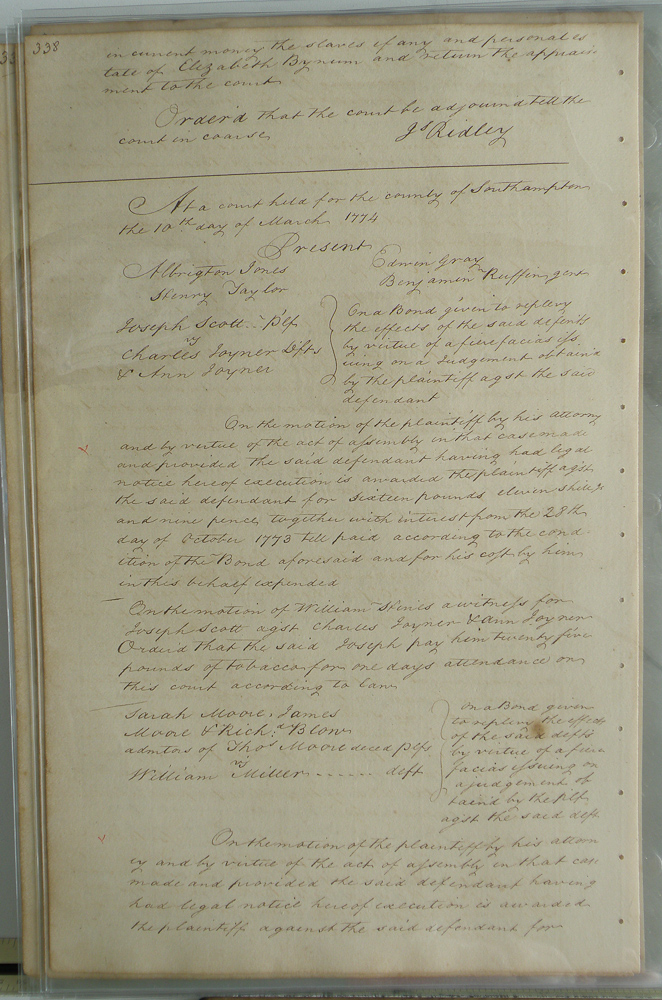 338
in current money the slaves if any and personal es
tate of Elizabeth Bynum and return the apprais
ment to the court
Orderd that the court be adjournd till the
court in coarse
Js Ridley
At a court held for the county of Southampton
the 10th day of March 1774
Present
Albrigton Jones
Edwin Gray
Henry Taylor
Benjamin Ruffin, gent
Joseph Scott Plf
vs
Charles Joyner Defts
& Ann Joyner
On a Bond given to replevy
the effects of the said defends
by virtue of a fierefacias iss
uing on a Judgement obtain'd
by the plaintiff agst the said
defendant
On the motion of the plaintiff by his attorny
and by virtue of the act of assembly in that case made
and provided the said defendant having had legal
notice hereof execution is awarded the plaintiff agst
the said defendant for sixteen pounds eleven shillgs
and nine pence together with interest from the 28th
day of October 1773 till paid according to the cond
ition of the Bond aforesaid and for his cost by him
in this behalf expended
On the motion of William a witness for
Joseph Scott agst Charles Joyner & Ann Joyner
Orderd that the said Joseph pay him twenty five
pounds of tobacco for one days attendance on
this court according to law
Sarah Moore, James
Moore & Richd Blow
admtors of Thos Moore decd Plfs
vs
William Miller ...... deft
on a Bond given
to replevy the effects
of the said defts
by virtue of a fiere
facias issuing on
a judgement ob
taind by the Plfs
agst the said deft
On the motion of the plaintiff by his attorn
ey and by virtue of the act of assembly in that case
made and provided the said defendant having
had legal notice hereof execution is awarded
the plaintiffs against the said defendant for